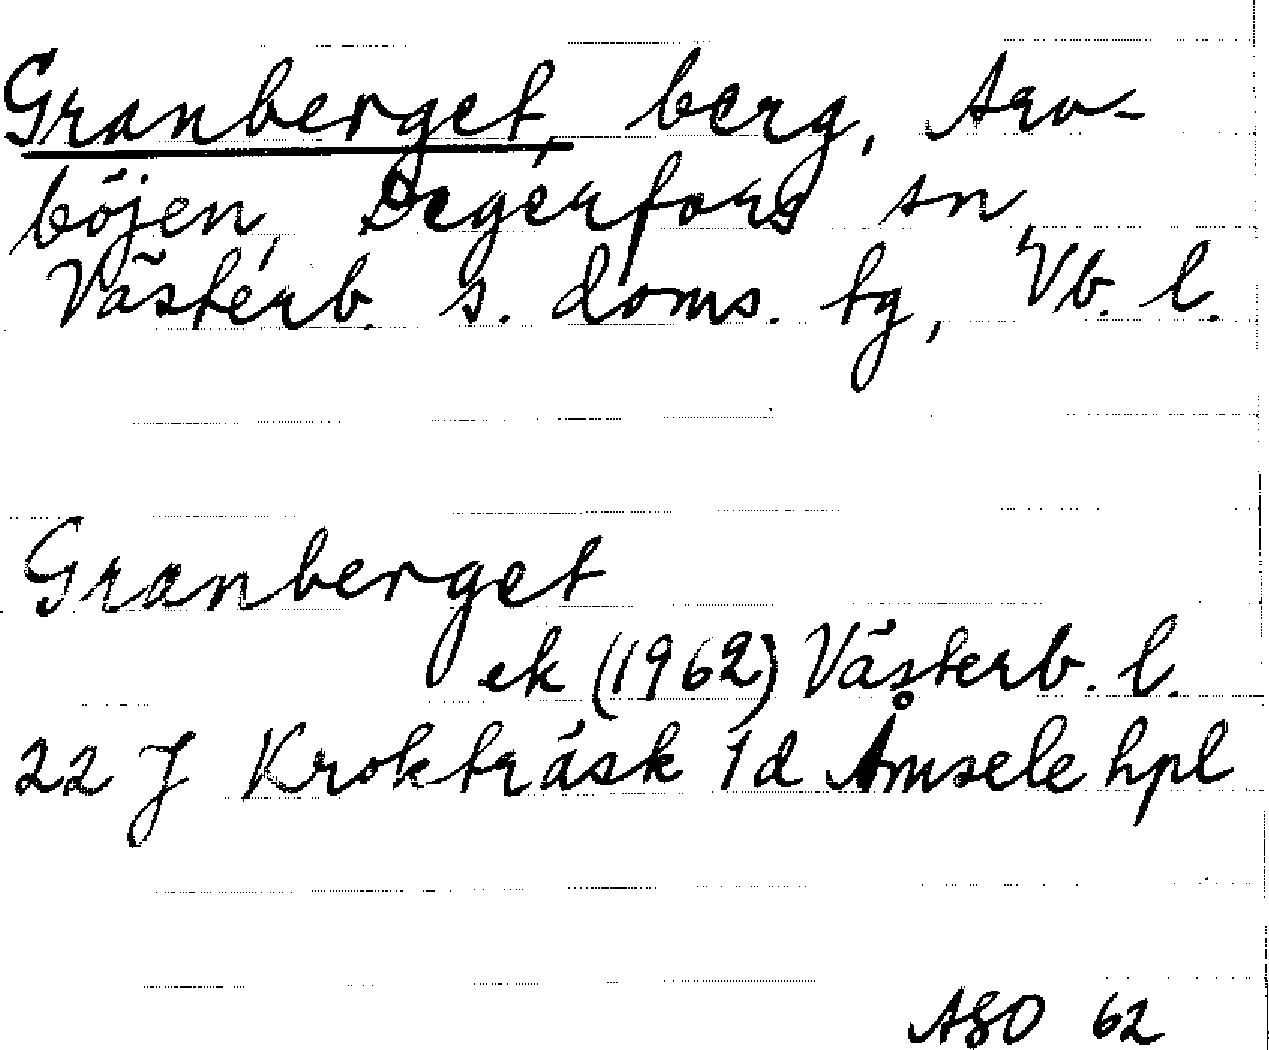 Granberget, berg, Arv-
böjen, Degerfors sn,
Västerb. s. doms. tg, Vb. l.
Granberget
ek (1962) Västerb. l.
22 J Krokträsk 1d Åmsele hpl
ASO 62